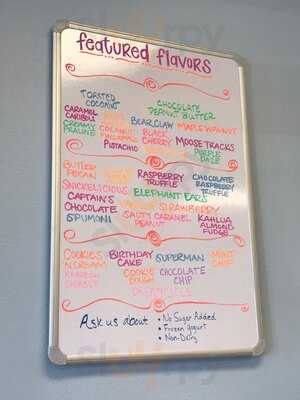 featured flavors
TOASTED COCONUT
CHOCOLATE PEANUT BUTTER
CARAMEL CARIBOU
BEAR CLAW
MAPLE WALNUT
CREAMY PRALINE
COCONUT PINEAPPLE
BLACK CHERRY
MOOSE TRACKS
PISTACHIO
PURPLE DAZE
BUTTER PECAN
RASPBERRY TRUFFLE
CHOCOLATE RASPBERRY TRUFFLE
SNICKELICIOUS
ELEPHANT EARS
CAPTAIN'S CHOCOLATE
STRAWBERRY
SPUMONI
SALTY CARAMEL PEANUT
KAHLUA ALMOND FUDGE
COOKIES 'N CREAM
BIRTHDAY CAKE
SUPERMAN
MINT CHIP
RAINBOW SHERBET
COOKIE DOUGH
CHOCOLATE CHIP
DREAMSICLE
Ask us about
• No Sugar Added
• Frozen Yogurt
• Non-Dairy